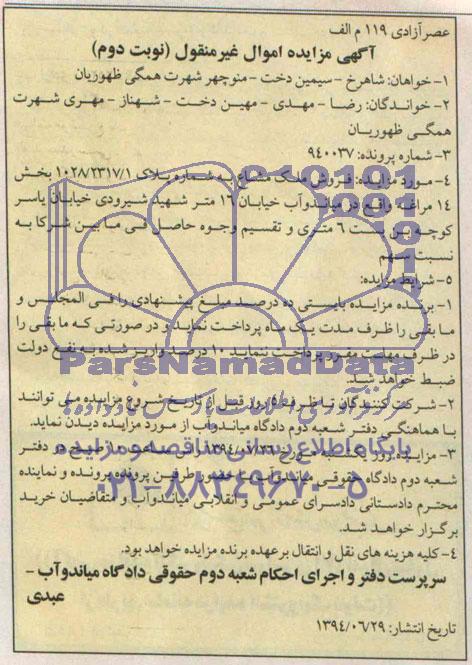 عصرآزادی ۱۱۹ م الف
آگهی مزایده اموال غیرمنقول (نوبت دوم)
۱- خواهان: شاهرخ - سیمین دخت - منوچهر شهرت همگی ظهوریان
۲- خواندگان: رضا - مهدی - مهین دخت - شهناز - مهری شهرت
همگی ظهوریان
۳- شماره پرونده: ۹۴۰۰۳۷
۴- مورد مزایده: فروش ملک مشاع به شماره پلاک ۱۰۲۸/۲۳۱۷/۱ بخش
۱۴ مراغه واقع در میاندوآب خیابان ۱۶ متر شهید شیرودی خیابان یاسر
کوچه بن بست ۶ متری و تقسیم وجوه حاصل فی مابین شرکا به
نسبت سهم
۵- شرایط مزایده:
۱- برنده مزایده بایستی ده درصد مبلغ پیشنهادی را فی المجلس و
مابقی را ظرف مدت یک ماه پرداخت نماید و در صورتی که مابقی را
در ظرف مهلت مقرر پرداخت ننماید ۱۰ درصد واریز شده به نفع دولت
ضبط خواهد شد.
۲- شرکت کنندگان تا ظرف ۵ روز قبل از تاریخ شروع مزایده می توانند
با هماهنگی دفتر شعبه دوم دادگاه میاندوآب از مورد مزایده دیدن نماید.
۳- مزایده روز یکشنبه مورخ ۱۳۹۴/۰۷/۲۶ صبح در دفتر
شعبه دوم دادگاه حقوقی میاندوآب با حضور طرفین پرونده و نماینده
محترم دادستانی دادسرای عمومی و انقلابی میاندوآب و متقاضیان خرید
برگزار خواهد شد.
۴- کلیه هزینه های نقل و انتقال برعهده برنده مزایده خواهد بود.
سرپرست دفتر و اجرای احکام شعبه دوم حقوقی دادگاه میاندوآب -
عبدی
تاریخ انتشار: ۱۳۹۴/۰۶/۲۹
ParsNamadData
پایگاه اطلاع رسانی مناقصه و مزایده
۰۲۱-۸۸۳۴۹۶۷۰-۵